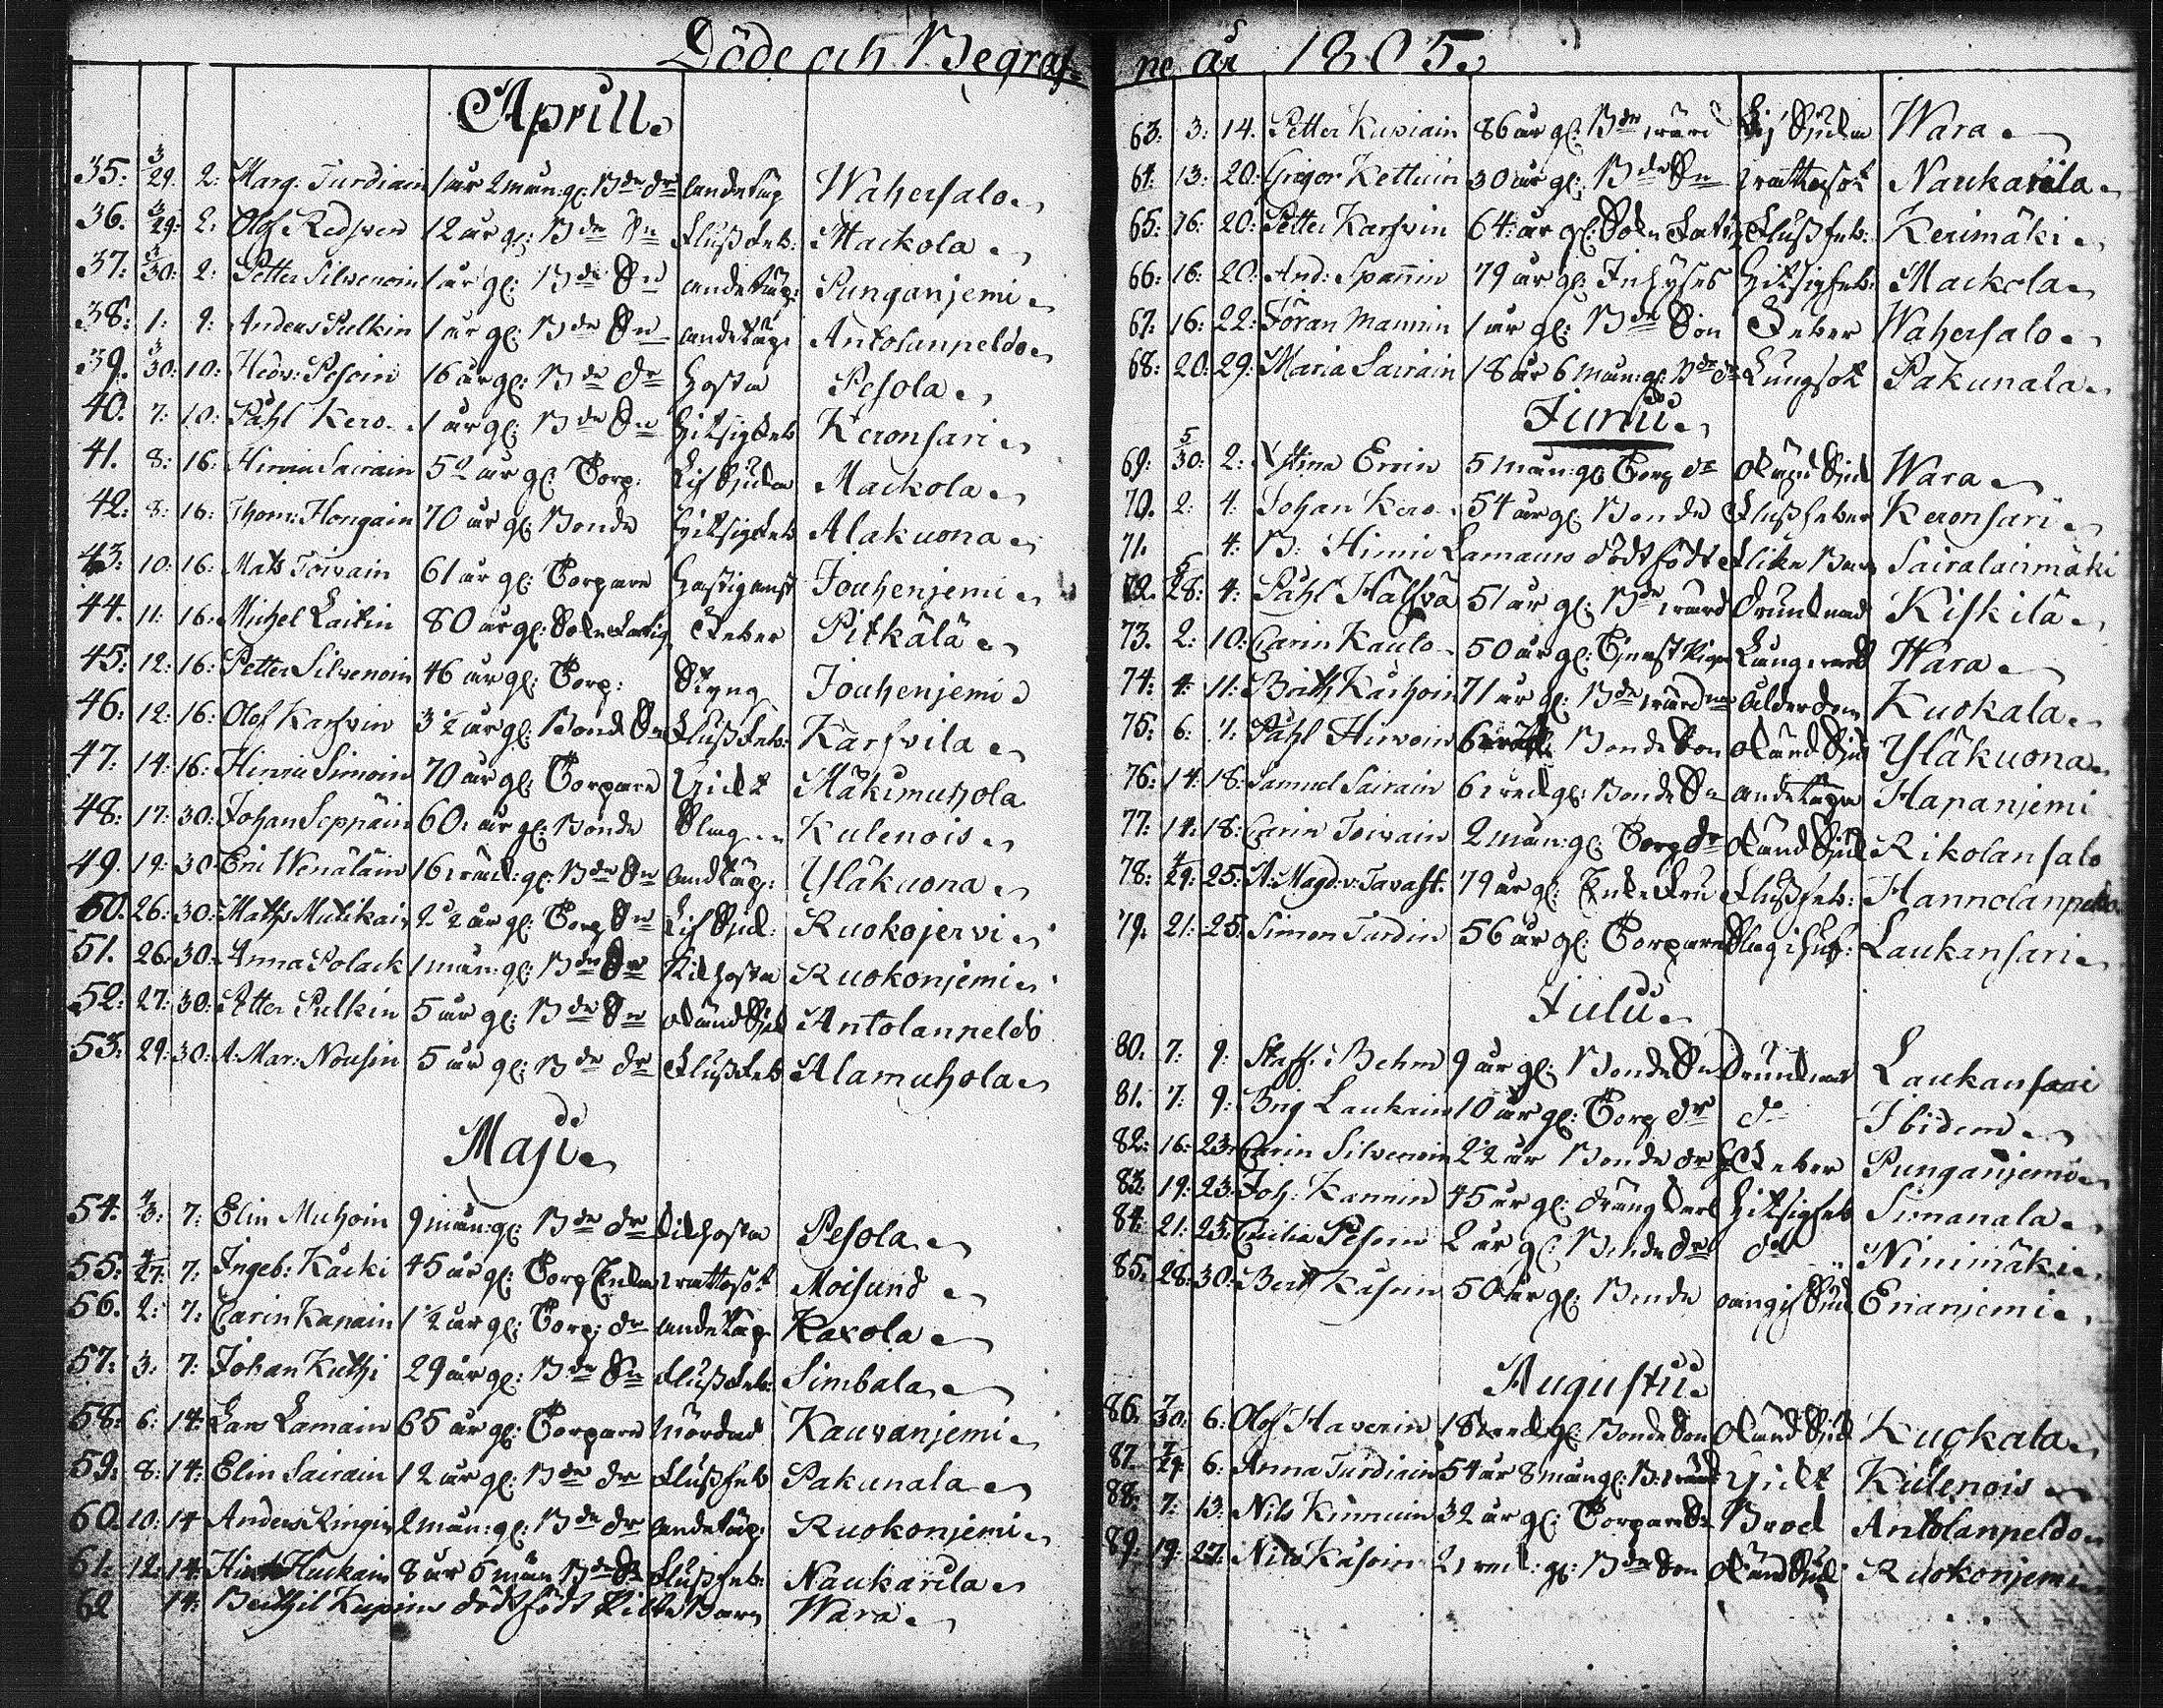 Döde och Begraf-
Aprill.
35. 3/29. 2. Marg. Turdiain 1 år 2 mån: gl: Bde dr andetäp Wahersalo
36. 3/29. 2. Olof Redsven 12 år gl: Bde Sn Flussfeb: Mackola
37. 3/30. 2. Petter Silvenoin 1 år gl: Bde Sn andetäp: Punganjemi
38. 1. 9. Anders Pulkin 1 år gl: Bde Sn andetäp. Antolanpeldo
39. 3/30. 10. Hedv: Pesoin 16 år gl: Bde dr hosta Pesola
40. 7. 10. Påhl Kero 1 år gl: Bde Sn hitsigfeb Keronsari
41. 8. 16. Hinric Sairain 52 år gl: Torp. Lifsiukan Mackola
42. 8. 16. Thom: Hongain 70 år gl: Bonde hitsigfeb Alakuona
43. 10. 16. Mats Toivain 61 år gl: Torpare hastigemst Jouhenjemi
44. 11. 16. Michel Laitin 80 år gl: Sokn fattig Feber Pitkälä
45. 12. 16. Petter Silvenoin 46 år gl: Torp: Styng Jouhenjemi
46. 12. 16. Olof Karsvin 3 1/2 år gl: Bond Sn Flussfeb: Karsvila
47. 14. 16. Hinric Simoin 70 år gl: Torpare Gickt Mäkimuhola
48. 17. 30. Johan Seppäin 60 år gl: Bonde Slag Kulenois
49. 19. 30. Eric Wenäläin 16 veck: gl: Bde Sn andtäp: Yläkuona
50. 26. 30. Maths Mutikain 2 1/2 år gl: Torp Sn Lifsiuk: Ruokojervi
51. 26. 30. Anna Polack 1 mån: gl: Bde dr Kikhosta Ruokonjemi
52. 27. 30. Petter Pulkin 5 år gl: Bde Sn okänd Siuk Antolanpeldo
53. 29. 30. A: Mar: Nousin 5 år gl: Bde dr Flussfeb Alamuhola
Maji
54. 4/3. 7. Elin Muhoin 9 mån: gl: Bde dr Kikhosta Pesola
55. 4/27. 7. Ingeb: Käcki 45 år gl: Torp Enka vattusot Moisund
56. 2. 7. Carin Kapain 1 1/2 år gl: Torp: dr andetäp Kaxola
57. 3. 7. Johan Kuthi 29 år gl: Bde Sn Flussfeb: Simbala
58. 6. 14. Lars Lamain 65 år gl: Torpare mördad Kauvanjemi
59. 8. 14. Elin Sairain 12 år gl: Bde dr Flussfeb Pakunala
60. 10. 14. Anders Ringin 2 mån: gl: Bde dr andetäp: Ruokonjemi
61. 12. 14. Huckain 8 år 6 mån Bde Flussfeb: Naukarila
62 14. Berthil Kupiains dödfödt Pilte Barn Wara
ne år 1805.
63. 3. 14. Petter Kupiain 86 år gl: Bde värd Lifsiukan Wara
64. 13. 20. Grigor Kettuin 30 år gl: Bde Sn vattusot Naukarila
65. 16. 20. Petter Karsvin 64 år gl: Sokn Fattig Flussfeb: Kerimäki
66. 16. 20. And: Spannin 79 år gl: Inhyses hitsigfeb: Mackola
67. 16. 22. Göran Mannin 1 år gl: Bde Son Feber Wahersalo
68. 20. 29. Maria Sairain 18 år 6 mån: gl: Bde dr Lungsot Pakunala
Junii
69. 5/30. 2. Xstina Eroin 5 mån: gl: Torp dr okänd Siuk Wara
70. 2. 4. Johan Kero 54 år gl: Bonde Flussfeber Keronsari
71. 4. B: Hinric Lamains dödfödt Flicke Barn Sairalainmäki
72. 5/28. 4. Påhl Hälsvä 51 år gl: Bde värd drunknad Kiskilä
73. 2. 10. Carin Kaulo 50 år gl: Tjenst Piga Lungsot Wara
74. 4. 11. Brith Kärhoin 71 år gl: Bde värd ålderdom Kuokala
75. 6. 11. Påhl Hirvoin 6 Bonde Son okänd Siuk Yläkuona
76. 14. 18. Samuel Sairain 6 veck gl: Bonde Sn andetäpa Hapanjemi
77. 14. 18. Carin Toivain 2 mån: gl: Torp dr okänd Siuk Rikolansalo
78. 4/29. 25. A: Magd: v: Tavast: 79 år gl: Enke Fru Flussfeb: Hannolanpeldo
79. 21. 25. Simon Turdin 56 år gl: Torpare Slag i huf: Laukansari
Julii
80. 7. 9. Staff: Behm 9 år gl: Bonde Sn Drunknat Laukansari
81. 7. 9. Brig Laukain 10 år gl: Torp dr do Ibidem
82. 16. 23. Carin Silvenoin 22 år Bonde dr Feber Punganjemi
83. 19. 23. Joh: Kannin 45 år gl: drängkarl hitsigfeb Simanala
84. 21. 23. Cicilia Pesoin 2 år gl: Bonde dr do Ninimäki
85. 28. 30. Bert Käsoin 50 år gl: Bonde Siuk Enanjemi
Augustii
86. 7/30. 6. Olof Haverin 18 veck gl: Bonde Son okänd Siuk Kuokala
87. 7/29. 6. Anna Turdiain 54 år 8 mån gl: B: värd Gickt Kulenois
88. 7. 13. Nils Kinnuin 32 år gl: Torpare Sn Brock Antolanpeldo
89. 19. 27. Nils Käsoin 2 veck: gl: Bde Son okänd Siuk Ruokonjemi